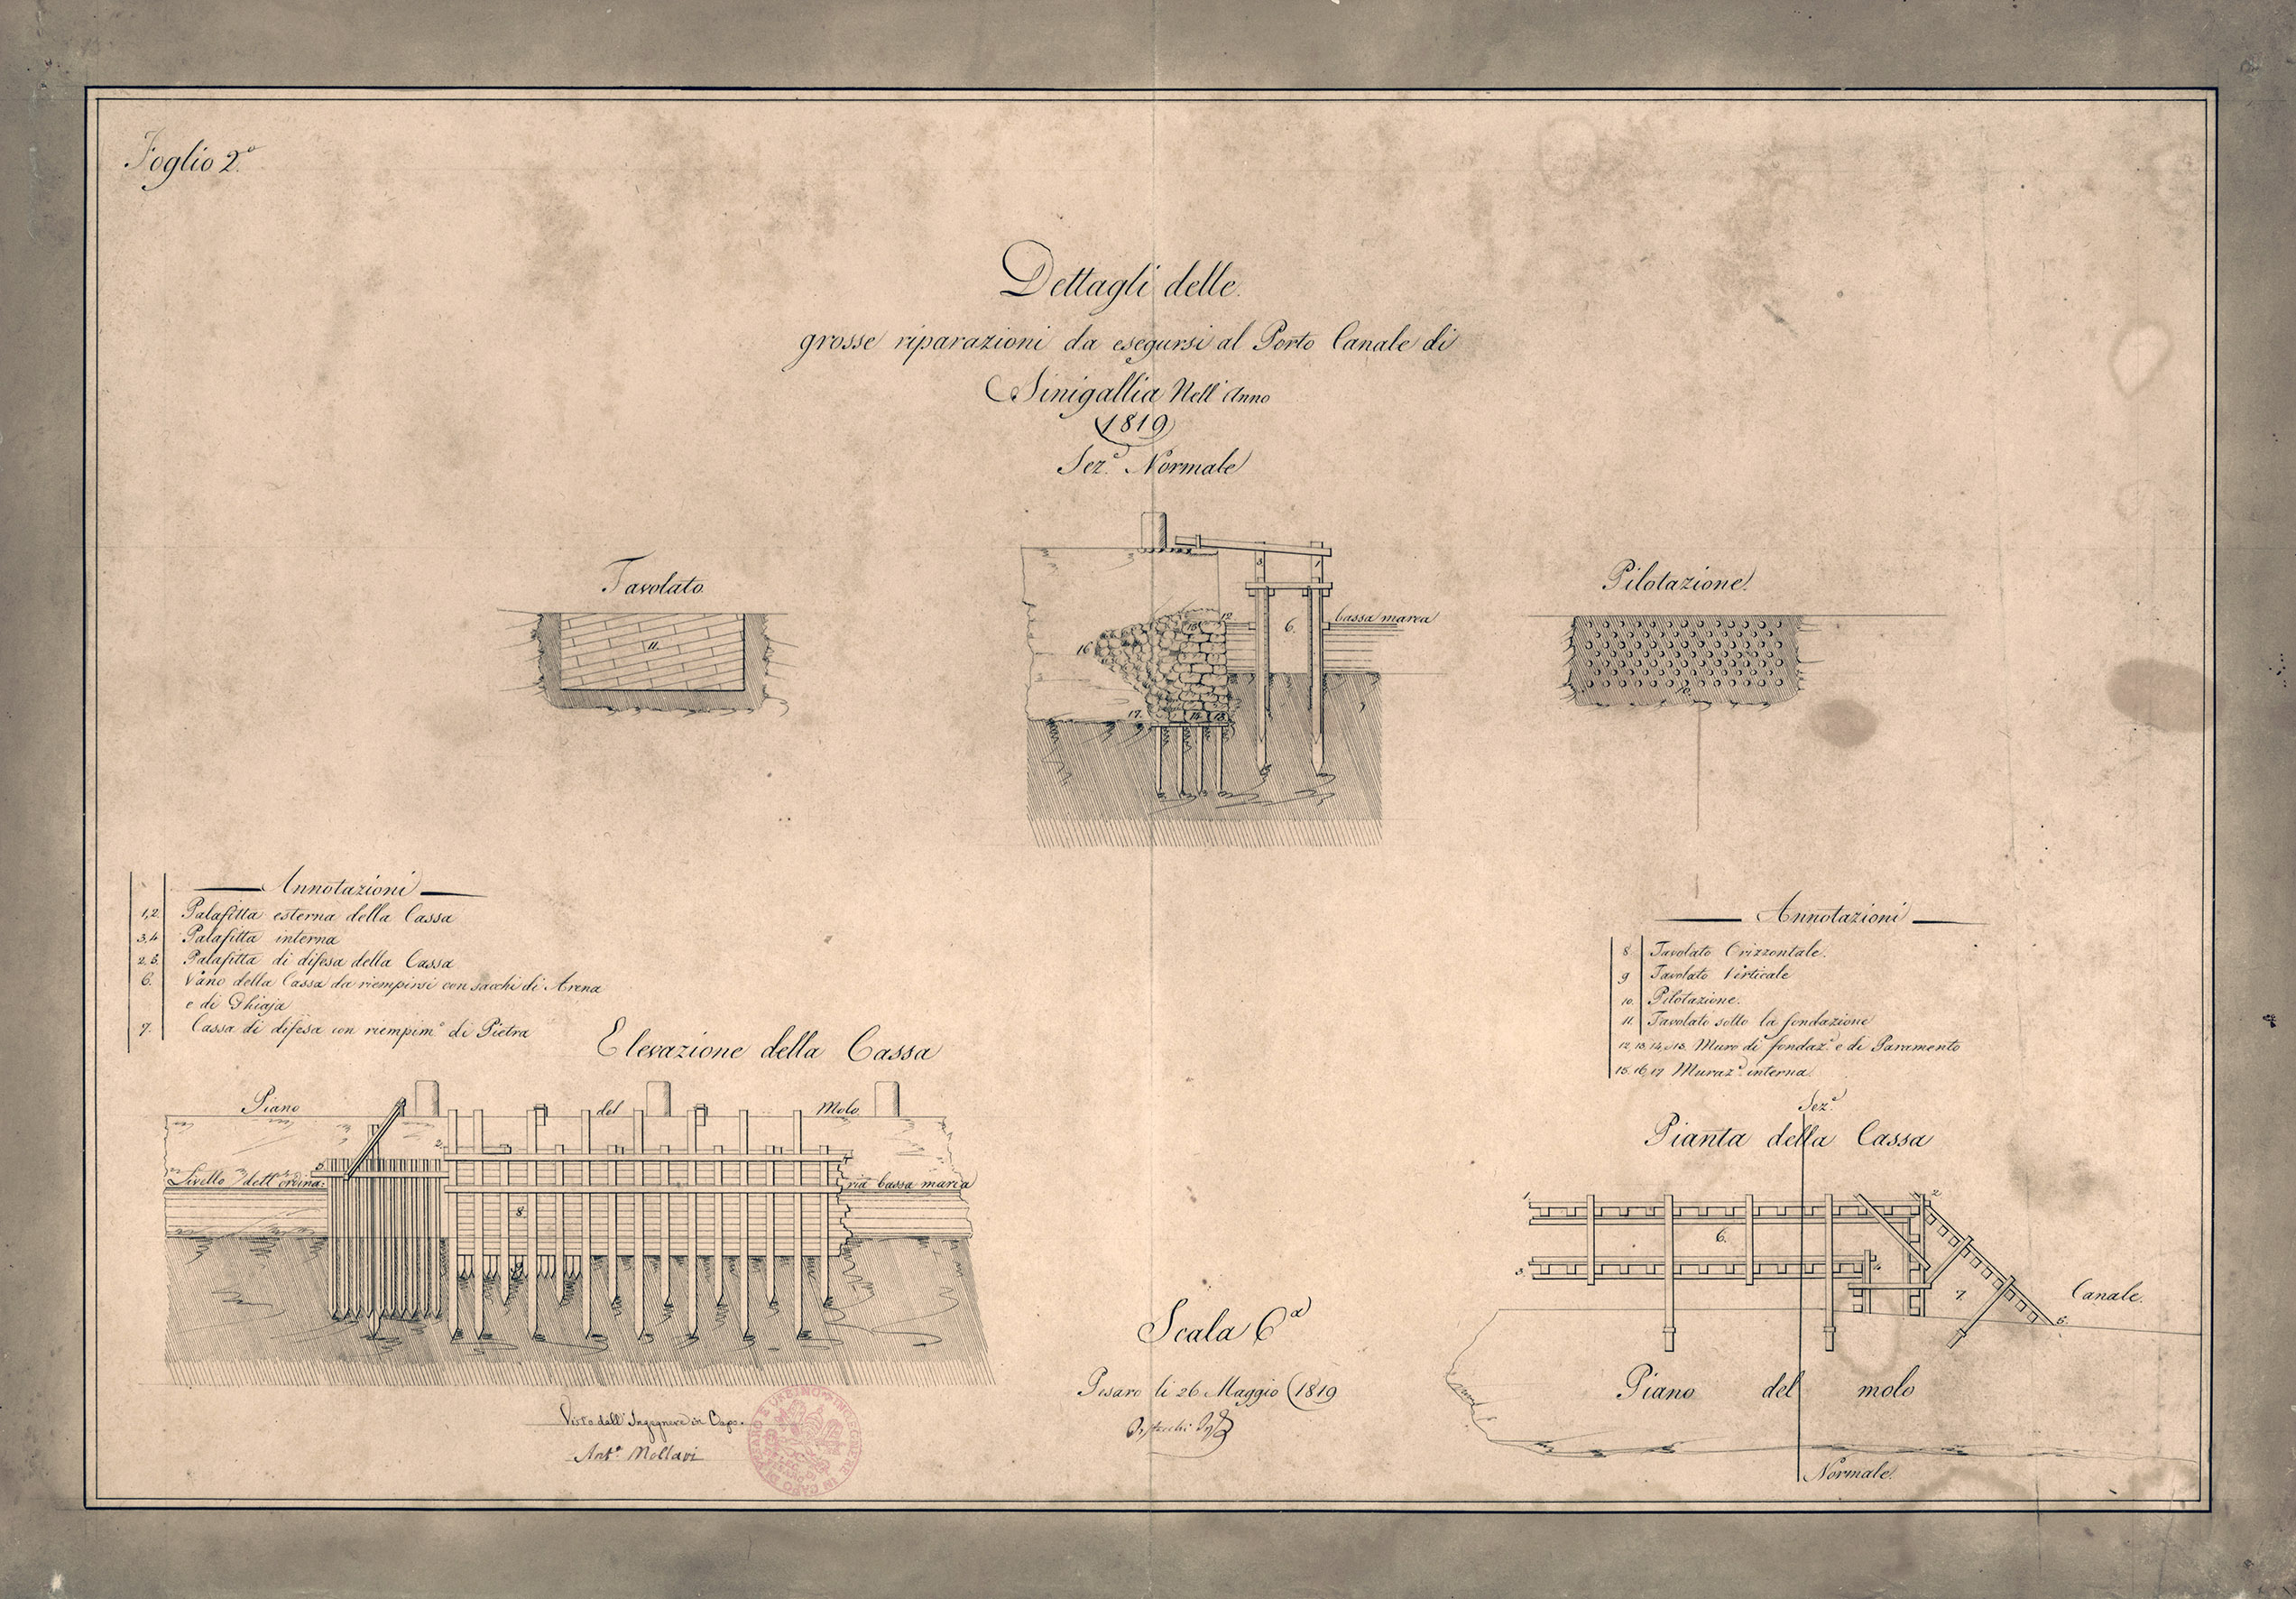 Foglio 2.o
Dettagli delle
grosse riparazioni da esegursi al Porto Canale di
Sinigallia Nell'Anno
1819
Sez.e Normale
Tavolato
11.
3
1
12
13
6.
bassa marea
16
17.
14
15
Pilotazione.
10.
Annotazioni
1,2. Palafitta esterna della Cassa
3,4 Palafitta interna
2,5. Palafitta di difesa della Cassa
6. Vano della Cassa da riempirsi con sacchi di Arena
e di Ghiaja
7. Cassa di difesa con riempim.o di Pietra
Annotazioni
8. Tavolato Orizzontale.
9 Tavolato Verticale
10. Pilotazione.
11. Tavolato sotto la fondazione
12, 13, 14, 15. Muro di fondaz.e e di Paramento
15. 16, 17 Muraz.e interna.
Elevazione della Cassa
Piano del Molo.
2.
5
Livello dell'ordina: ria bassa marea
8
Sez.e
Pianta della Cassa
1.
2
6.
3.
4.
7.
5.
Canale.
Piano del molo
Normale.
Scala 6.a
Pesaro li 26 Maggio 1819
Visto dall'Ingegnere in Capo.
Ant.o Mollari
INGEGNERE IN CAPO DI PESARO E URBINO